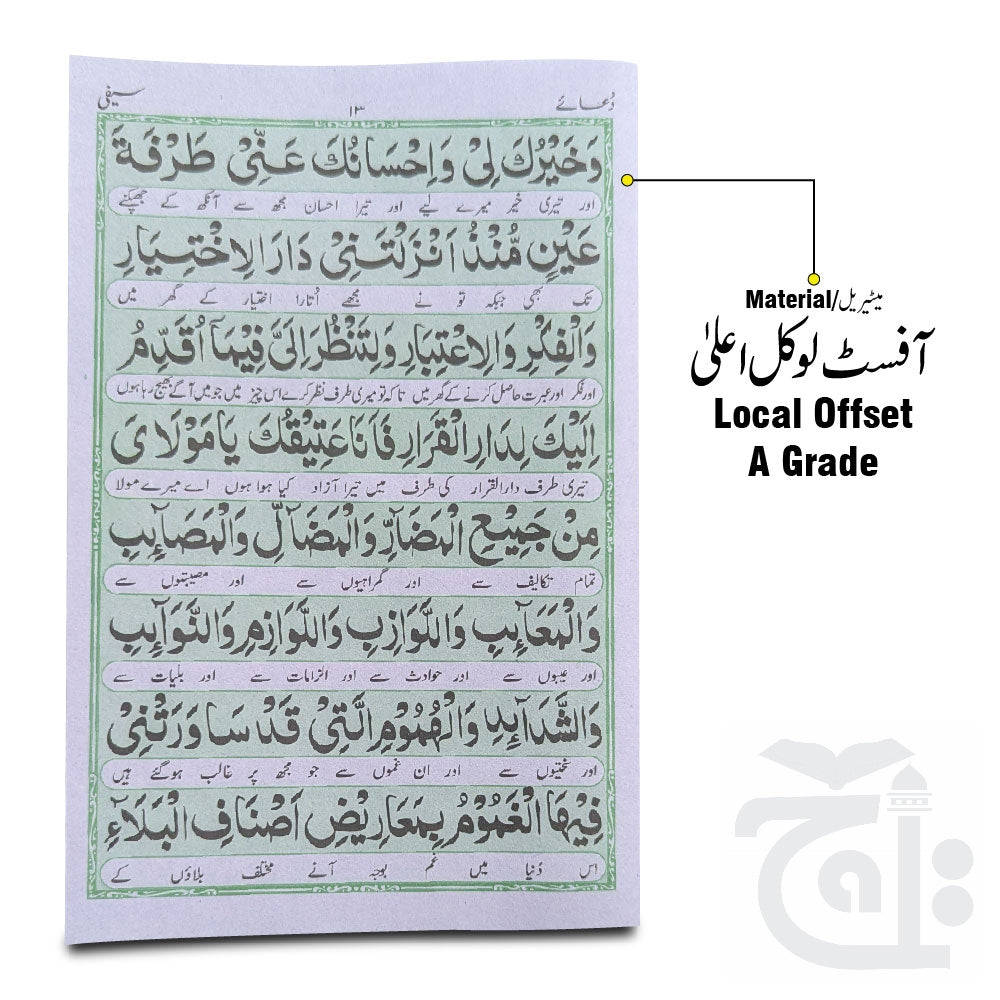 دُعائے ۱۳ سیفی
وَخَيْرُكَ لِىْ وَاِحْسَانُكَ عَنِّىْ طَرْفَةَ
اور تیری خیر میرے لیے اور تیرا احسان مجھ سے آنکھ کے جھپکنے
عَيْنٍ مُّنْذُ اَنْزَلْتَنِىْ دَارَ الِاخْتِيَارِ
تک بھی جبکہ تو نے مجھے اُتارا اختیار کے گھر میں
وَالْفِكْرِ وَالِاعْتِبَارِ وَلِتَنْظُرَ اِلَىَّ فِيْمَآ اُقَدِّمُ
اور فکر اور عبرت حاصل کرنے کے گھر میں تاکہ تو میری طرف نظر کرے اس چیز میں جو میں آگے بھیج رہا ہوں
اِلَيْكَ لِدَارِ الْقَرَارِ فَاَنَا عَتِيْقُكَ يَا مَوْلَاىَ
تیری طرف دارالقرار کی طرف میں تیرا آزاد کیا ہوا ہوں اے میرے مولا
مِنْ جَمِيْعِ الْمَضَآرِّ وَالْمَضَآلِّ وَالْمَصَآئِبِ
تمام تکالیف سے اور گمراہیوں سے اور مصیبتوں سے
وَالْمَعَآئِبِ وَاللَّوَازِبِ وَاللَّوَازِمِ وَالنَّوَآئِبِ
اور عیبوں سے اور حوادث سے اور الزامات سے اور بلیات سے
وَالشَّدَآئِدِ وَالْهُمُوْمِ الَّتِىْ قَدْ سَاوَرَتْنِىْ
اور سختیوں سے اور ان غموں سے جو مجھ پر غالب ہوگئے ہیں
فِيْهَا الْغُمُوْمُ بِمَعَارِيْضِ اَصْنَافِ الْبَلَآءِ
اس دُنیا میں غم بوجہ آنے مختلف بلاؤں کے
Material/میٹیریل
آفسٹ لوکل اعلیٰ
Local Offset
A Grade